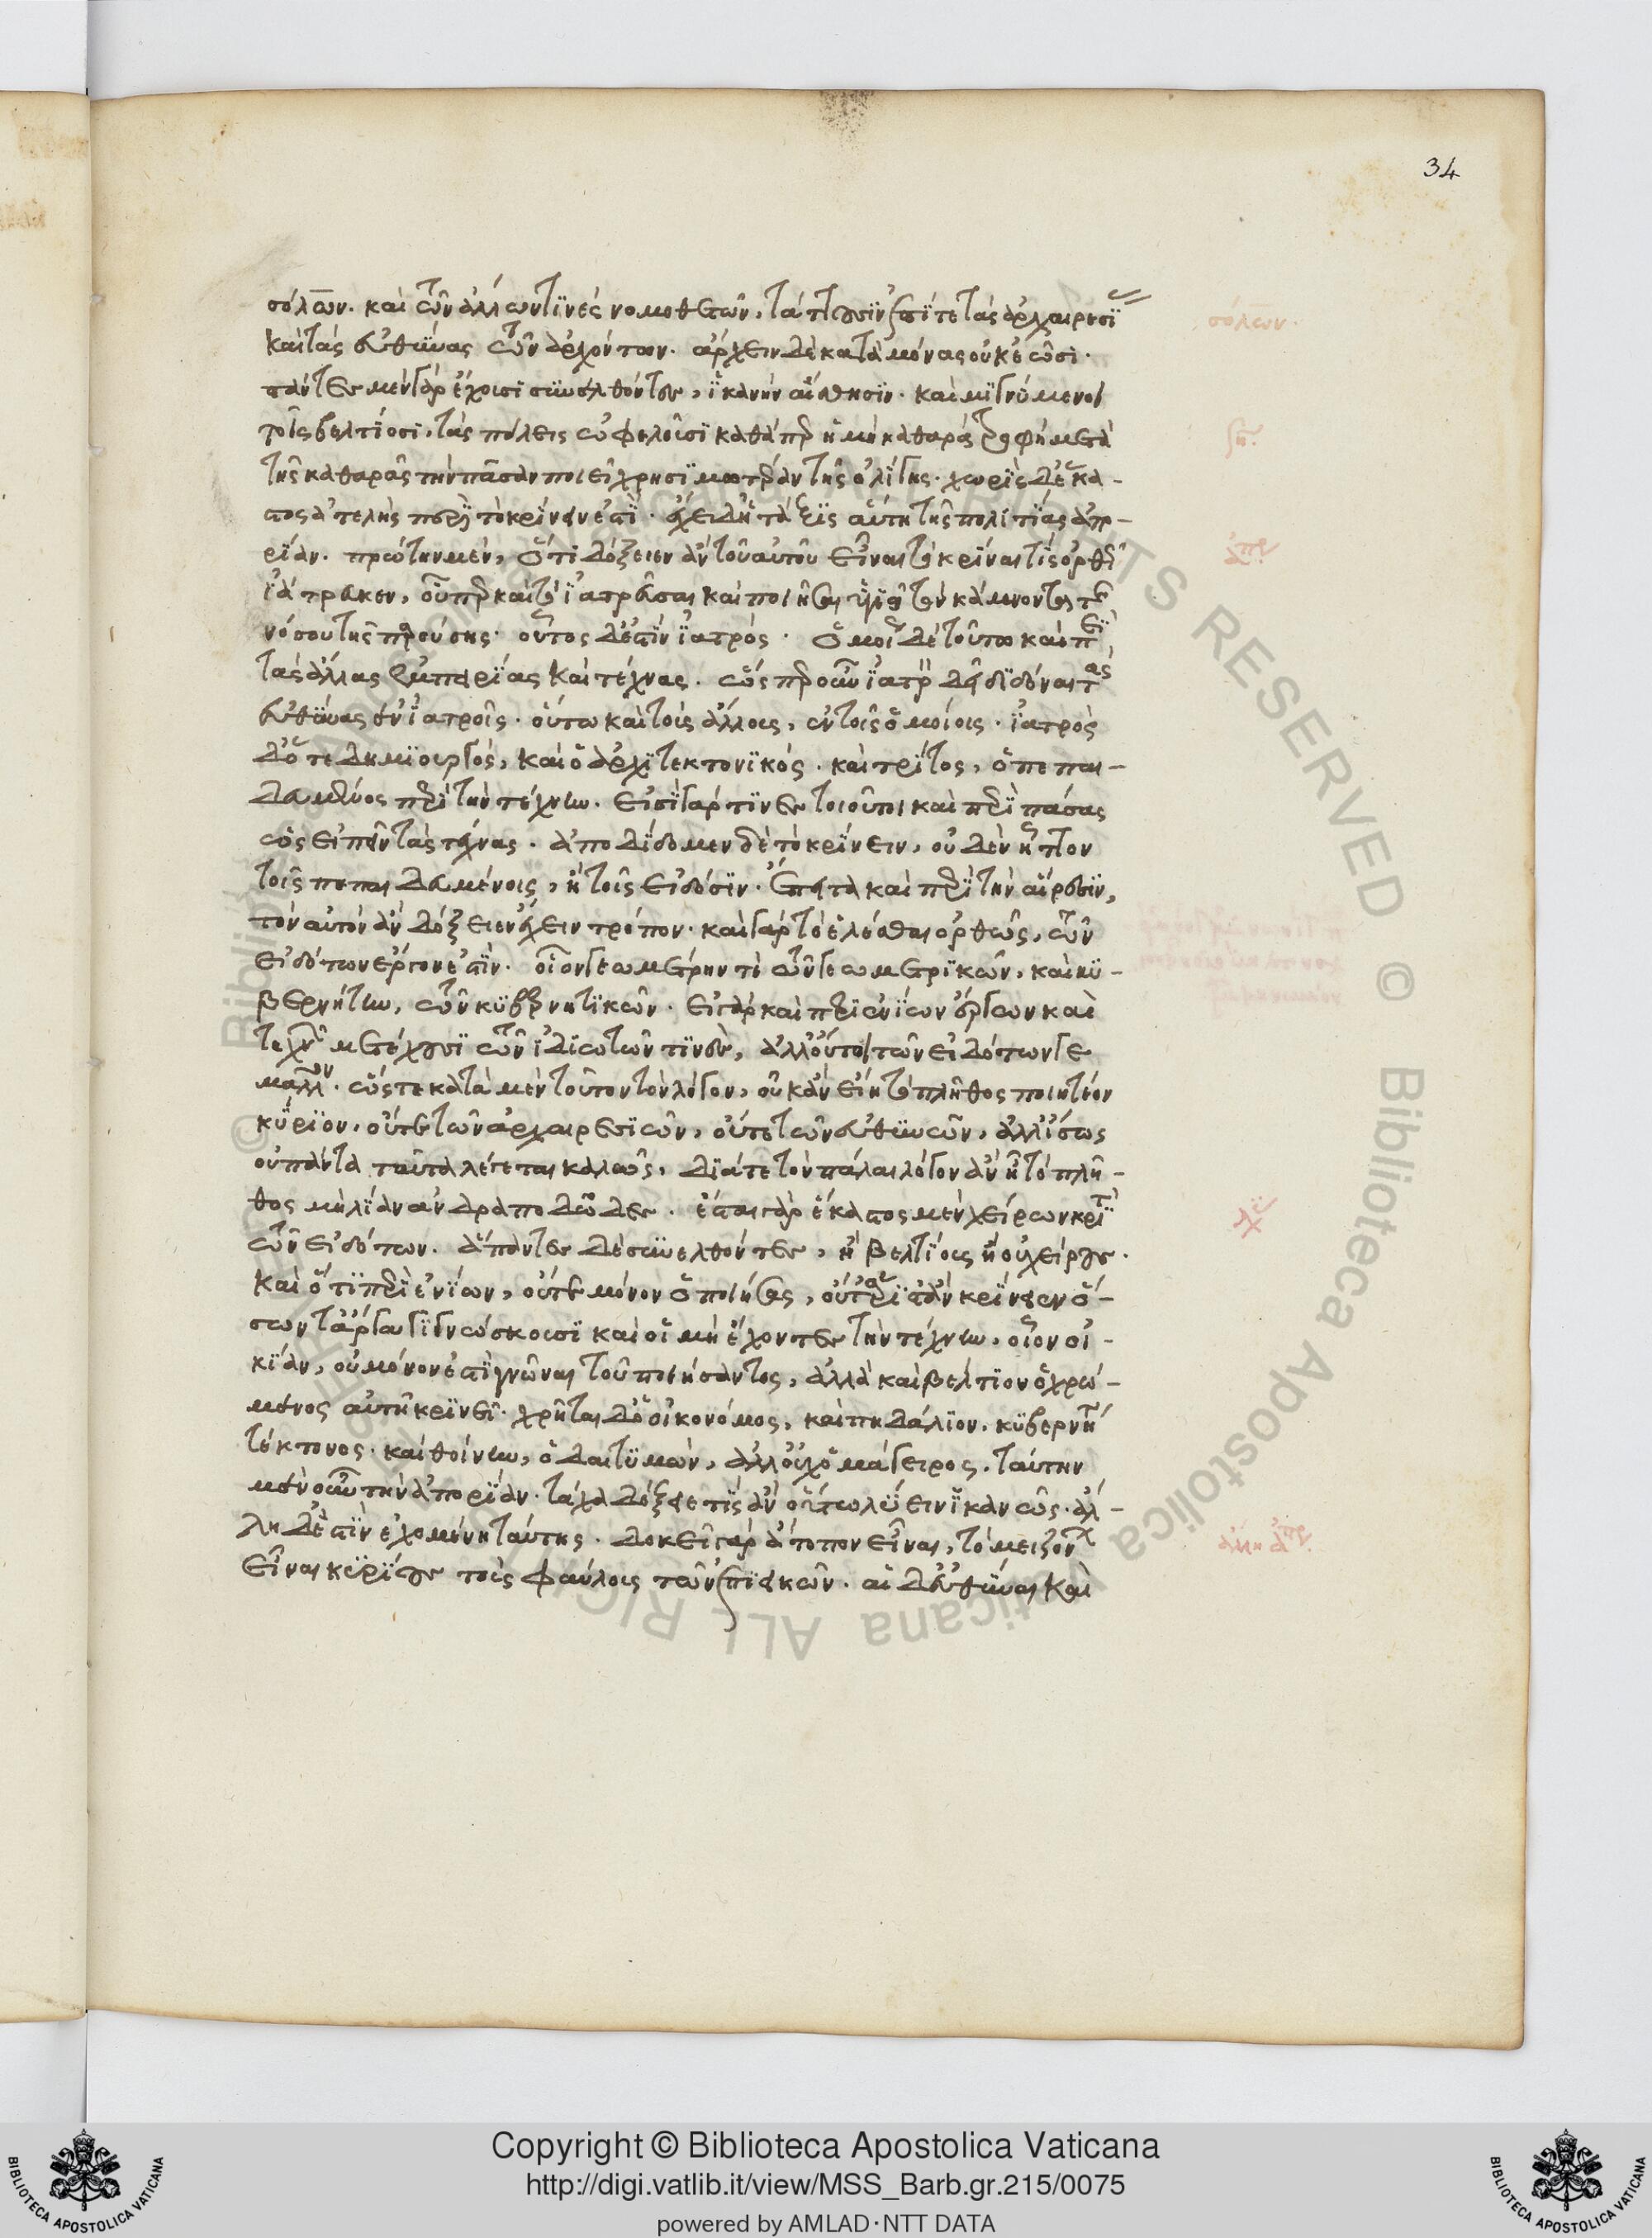 34
σόλων. καὶ τῶν ἄλλων τινὲς νομοθετῶν, τάττουσιν ἐπί τε τὰς ἀρχαιρεσί
καὶ τὰς εὐθύνας τῶν ἀρχόντων. ἄρχειν δὲ κατὰ μόνας οὐκ ἐῶσι.
πάντες μὲν γὰρ ἔχουσι συνελθόντες, ἱκανὴν αἴσθησιν. καὶ μιγνύμενοι
τοῖς βελτίοσι, τὰς πόλεις ὠφελοῦσι καθάπερ ἡ μὴ καθαρὰ τροφὴ μετὰ
τῆς καθαρᾶς τὴν πᾶσαν ποιεῖ χρησιμωτέραν τῆς ὀλίγης. χωρὶς δ' ἕκα-
στος ἀτελὴς περὶ τὸ κρίνειν ἐστί. ἔχει δ' ἡ τάξις αὕτη τῆς πολιτίας ἀπο-
ρίαν. πρώτην μὲν, ὅτι δόξειεν ἂν τοῦ αὐτοῦ εἶναι τὸ κρῖναι τίς ὀρθῶ
ἰάτρευκεν, οὗπερ καὶ τὸ ἰατρεῦσαι καὶ ποιῆσαι ὑγιᾶ τὸν κάμνοντα τῆς
νόσου τῆς παρούσης. οὗτος δ' ἐστὶν ἰατρός. ὁμοίως δὲ τοῦτο καὶ περὶ
τὰς ἄλλας ἐμπειρίας καὶ τέχνας. ὥσπερ οὖν ἰατρὸν δεῖ διδόναι τὰς
εὐθύνας ἐν ἰατροῖς. οὕτω καὶ τοὺς ἄλλους, ἐν τοῖς ὁμοίοις. ἰατρὸς
δ' ὅ τε δημιουργός, καὶ ὁ ἀρχιτεκτονικός. καὶ τρίτος, ὁ πεπαι-
δευμένος περὶ τὴν τέχνην. εἰσὶ γάρ τινες τοιοῦτοι καὶ περὶ πάσας
ὡς εἰπεῖν τὰς τέχνας. ἀποδίδομεν δὲ τὸ κρίνειν, οὐδὲν ἧττον
τοῖς πεπαιδευμένοις, ἢ τοῖς εἰδόσιν. ἔπειτα καὶ περὶ τὴν αἵρεσιν,
τὸν αὐτὸν ἂν δόξειεν ἔχειν τρόπον. καὶ γὰρ τὸ ἑλέσθαι ὀρθῶς, τῶν
εἰδότων ἔργον ἐστίν. οἷον γεωμέτρην τὲ τῶν γεωμετρικῶν, καὶ κυ-
βερνήτην, τῶν κυβερνητικῶν. εἰ γὰρ καὶ περὶ ἐνίων ἔργων καὶ
τεχνῶν μετέχουσι τῶν ἰδιωτῶν τινὲς, ἀλλ' οὔτοι τῶν εἰδότων γε
μᾶλλον. ὥστε κατὰ μὲν τοῦτον τὸν λόγον, οὐκ ἂν εἴη τὸ πλῆθος ποιητέον
κύριον, οὔτε τῶν ἀρχαιρεσιῶν, οὔτε τῶν εὐθυνῶν, ἀλλ' ἴσως
οὐ πάντα ταῦτα λέγεται καλῶς, διά τε τὸν πάλαι λόγον ἂν ᾖ τὸ πλῆ-
θος μὴ λίαν ἀνδραποδῶδες. ἔσται γὰρ ἕκαστος μὲν χείρων κριτὴ
τῶν εἰδότων. ἅπαντες δὲ συνελθόντες, ἢ βελτίους ἢ οὐ χείρους.
καὶ ὅτι περὶ ἐνίων, οὔτε μόνον ὁ ποιήσας, οὔτ' ἄριστ' ἂν κρίνειεν ὅ-
σων τἆργα γιγνώσκουσι καὶ οἱ μὴ ἔχοντες τὴν τέχνην, οἷον οἰ-
κίαν, οὐ μόνον ἐστὶ γνῶναι τοῦ ποιήσαντος, ἀλλὰ καὶ βελτίον ὁ χρώ-
μενος αὐτῇ κρινεῖ. χρῆται δ' ὁ οἰκονόμος, καὶ πηδάλιον, κυβερνή
τέκτονος. καὶ θοίνην, ὁ δαιτυμὼν, ἀλλ' οὐχ ὁ μάγειρος. ταύτην
μὲν οὖν τὴν ἀπορίαν. τάχα δόξειέ τις ἂν οὕτω λύειν ἱκανῶς. ἄλ-
λη δ' ἐστὶν ἐχομένη ταύτης. δοκεῖ γὰρ ἄτοπον εἶναι, τὸ μειζόνων
εἶναι κυρίους τοὺς φαύλους τῶν ἐπιεικῶν. αἱ δ' εὐθύναι καὶ
σόλων.
ση.
ἀπο.
λύ
ἄλλη ἀπο.
© Biblioteca Apostolica Vaticana ALL RIGHTS RESERVED
Copyright © Biblioteca Apostolica Vaticana
http://digi.vatlib.it/view/MSS_Barb.gr.215/0075
powered by AMLAD·NTT DATA
BIBLIOTECA APOSTOLICA VATICANA
BIBLIOTECA APOSTOLICA VATICANA